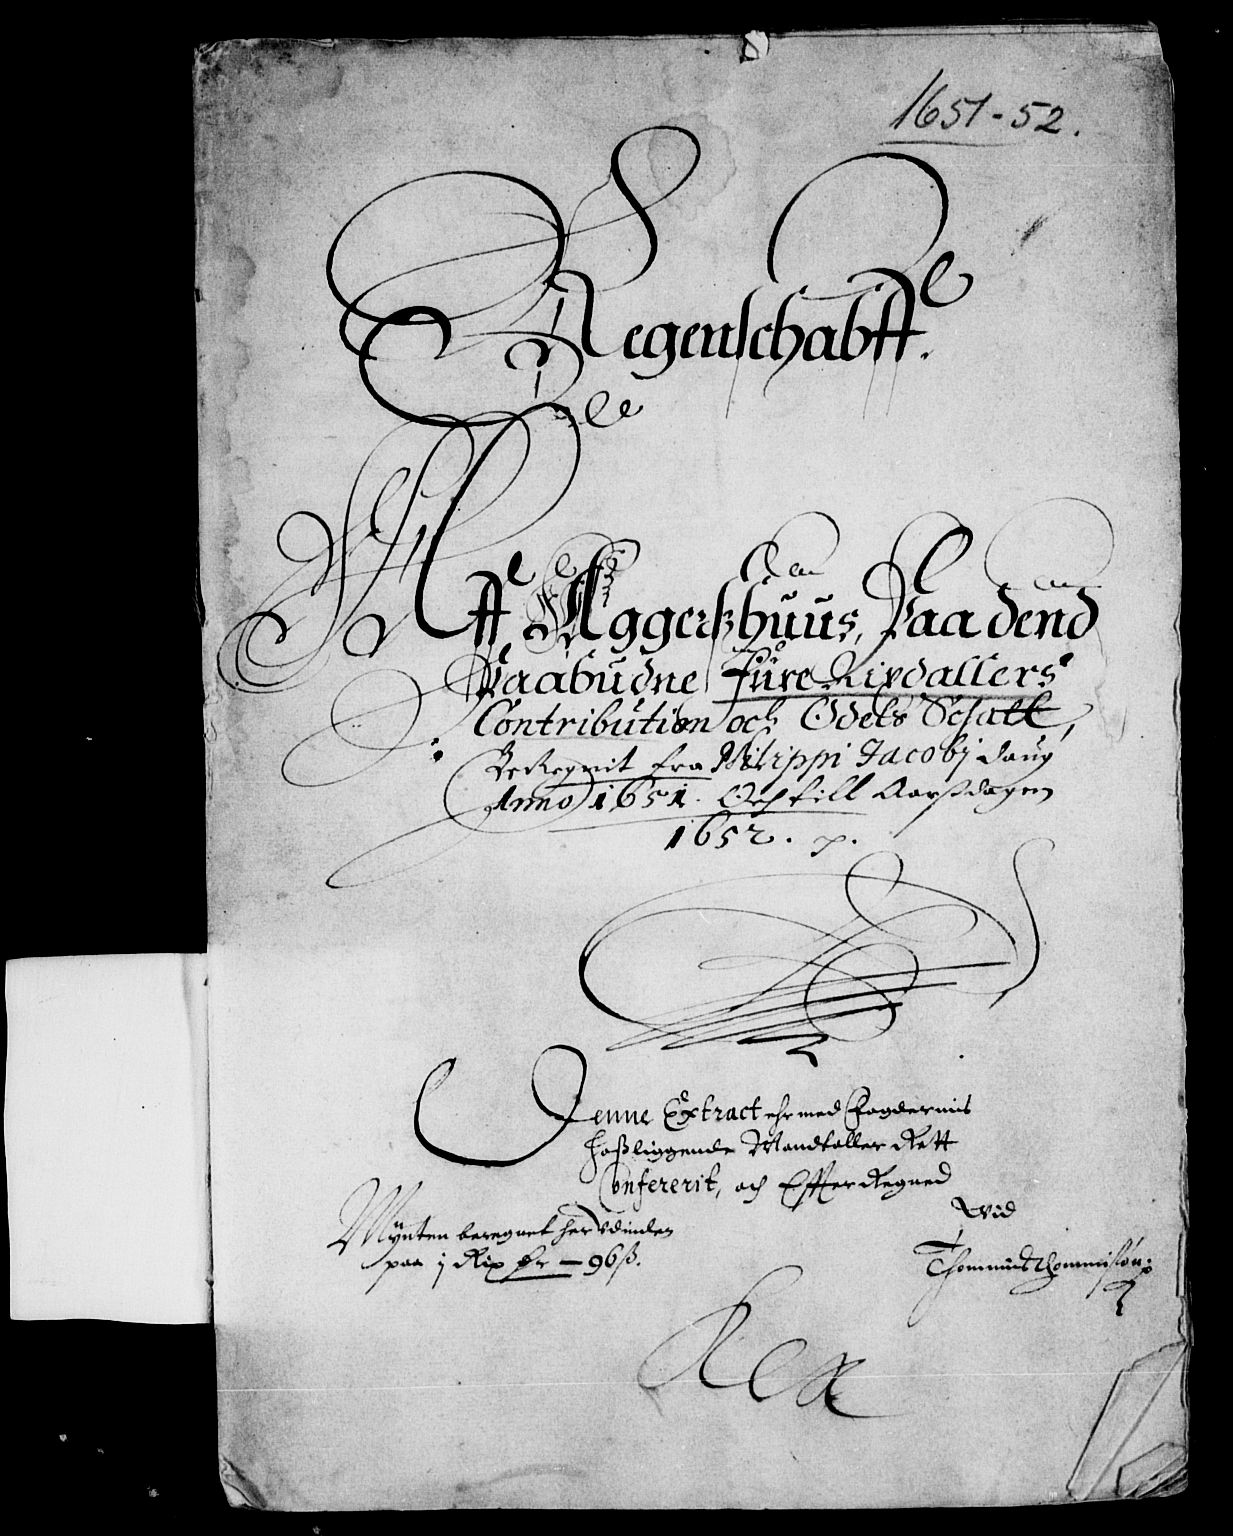 1651-52.
Regenschabff.
Aff Aggerßhuus, Paa dend
Paabudne fure Rixdallers
Contribution och Odels Schatt,
Beregnit fra Philippi Jacobj daug
Anno 1651. Och till Aarßdagen
1652.
Denne Extract ehr med Fogdernis
hoßliggende Mandtaller Rett
Confererit, och Effter Regned
Wid
Thommis Thommisøn
Mÿnten beregnet her Vdinden
paa j Rix dr — 96 ß.